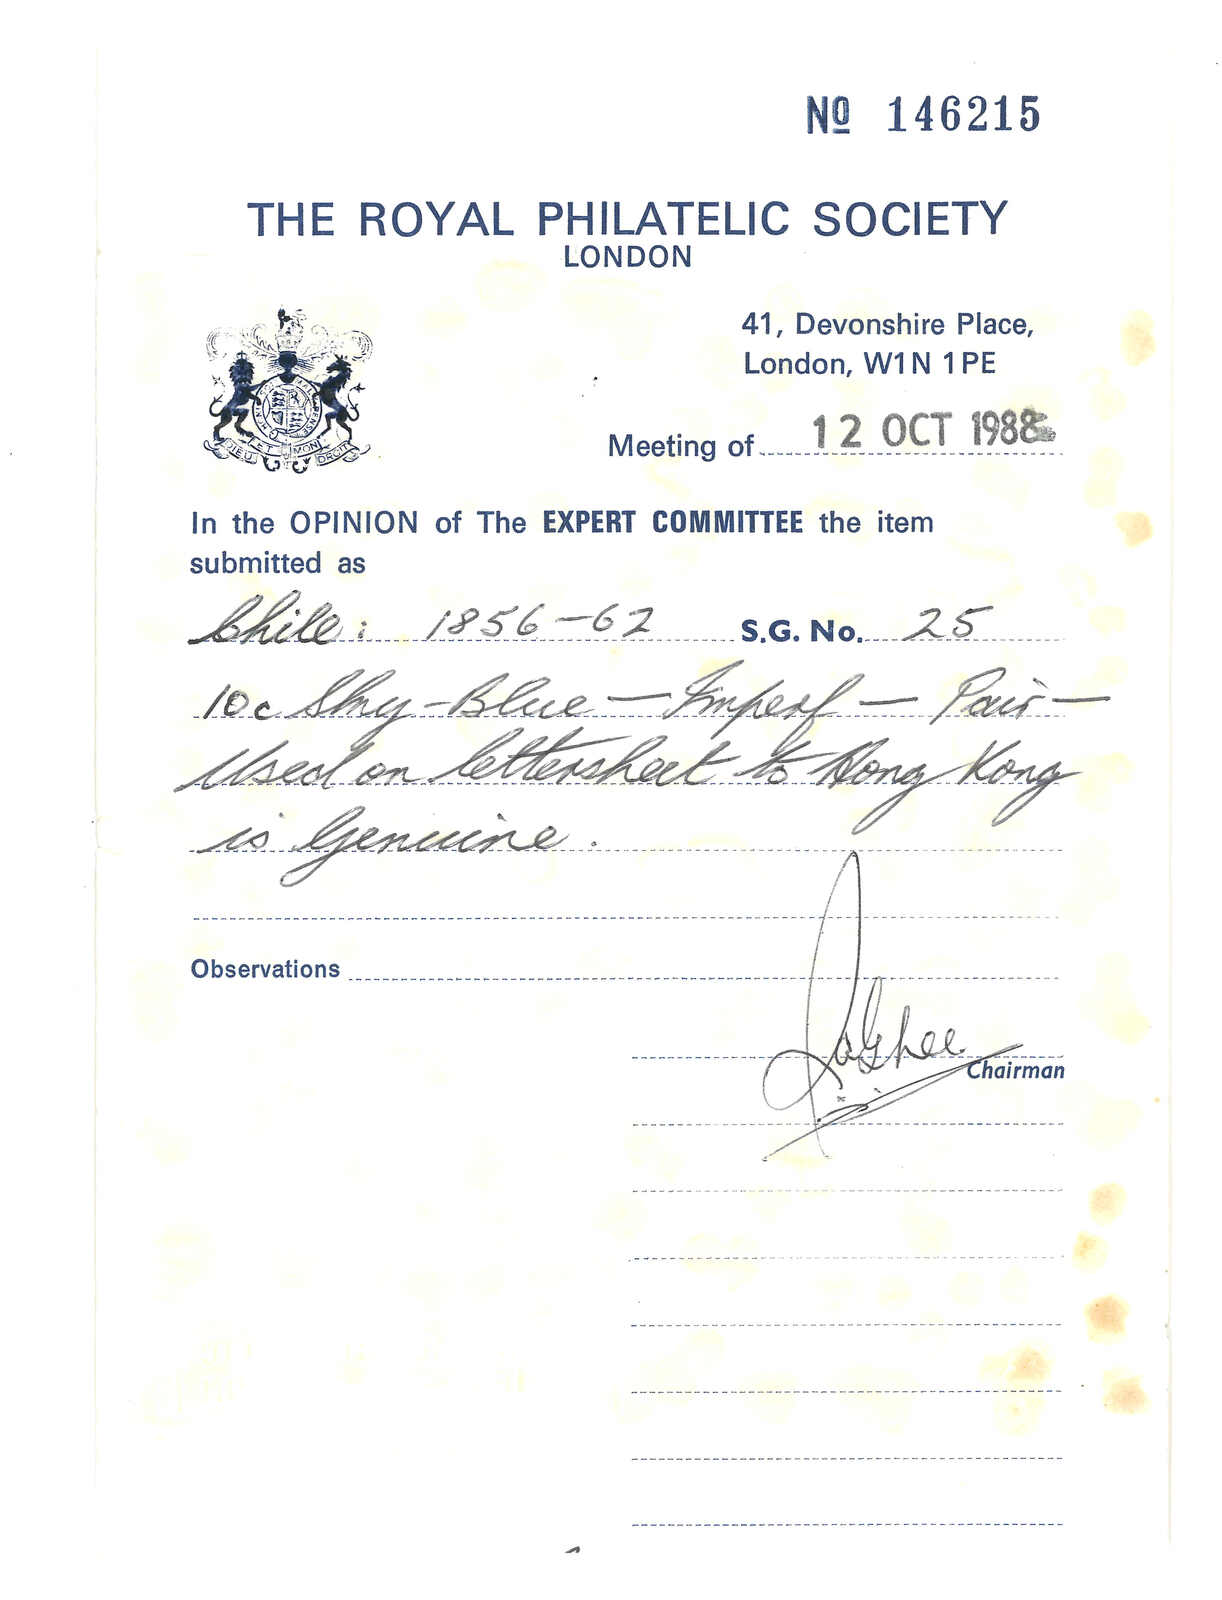 Nº 146215
THE ROYAL PHILATELIC SOCIETY
LONDON
41, Devonshire Place,
London, W1N 1PE
Meeting of 12 OCT 1988
In the OPINION of The EXPERT COMMITTEE the item
submitted as
Chile: 1856-62 S.G. No. 25
10c Sky-Blue - Imperf - Pair -
Used on lettersheet to Hong Kong
is Genuine.
Observations
Chairman
DIEU ET MON DROIT